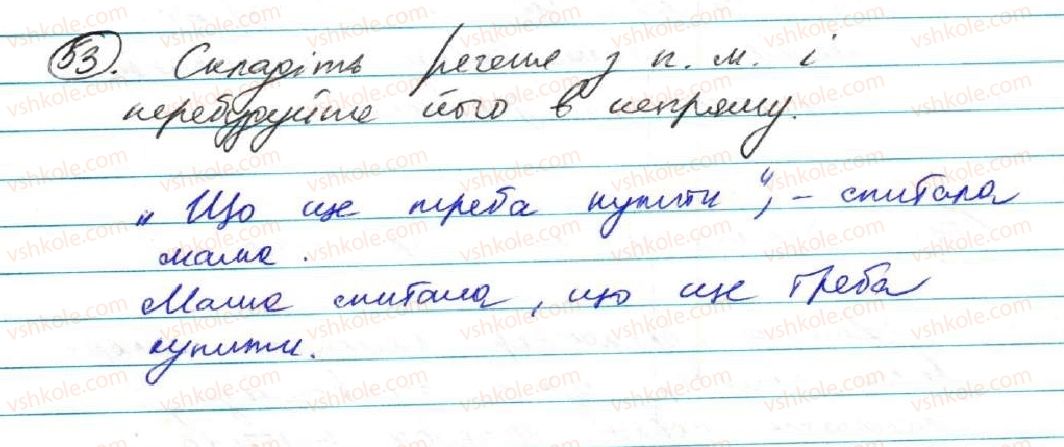 53. Складіть речення з п. м. і
перебудуйте його в непряму.
„Що ще треба купити", – спитала
мама.
Мама спитала, що ще треба
купити.